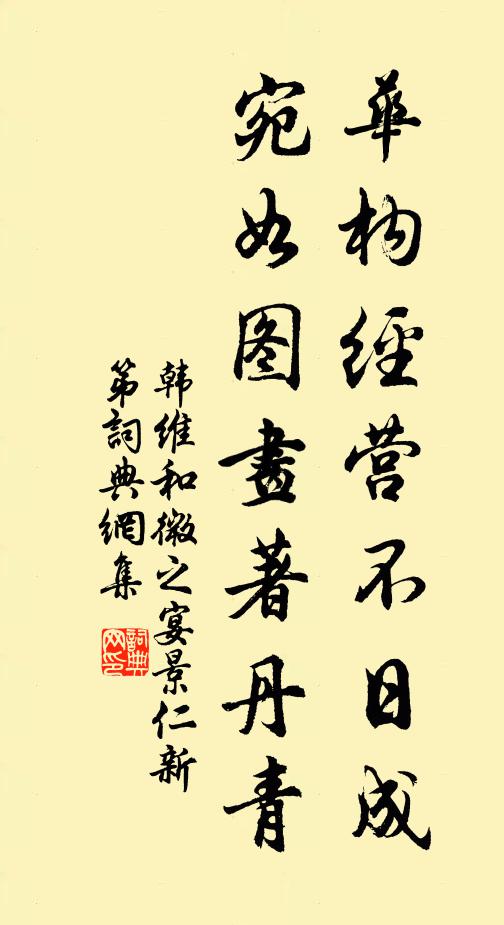 華构經营不日成
宛如图畫著丹青
韩維和微之宴景仁新
第詞典網集
詞典
网印